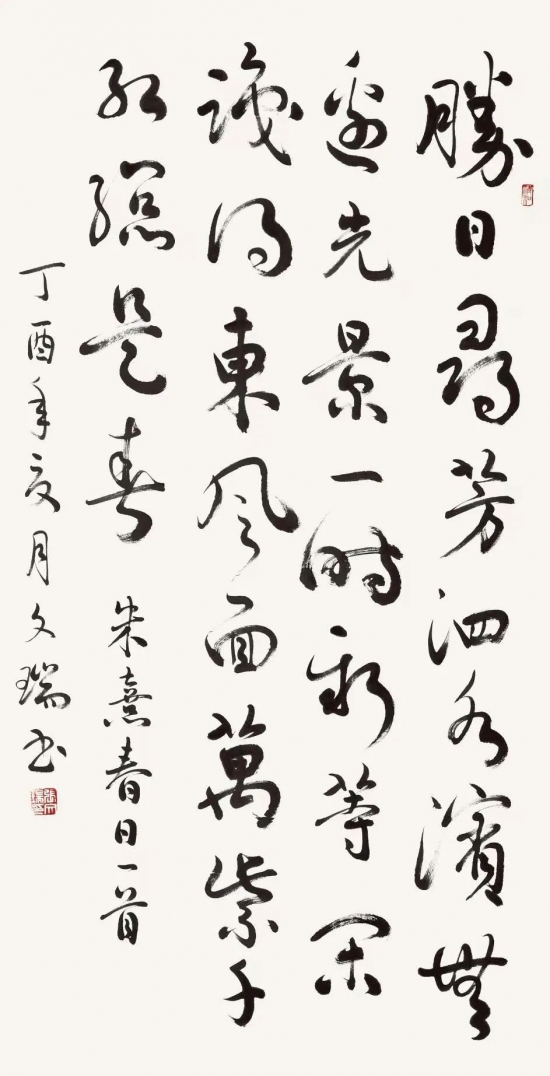 勝日尋芳泗水濱無
邊光景一時新等閑
識得東風面萬紫千
紅總是春
朱熹春日一首
丁酉年夏月文瑞書